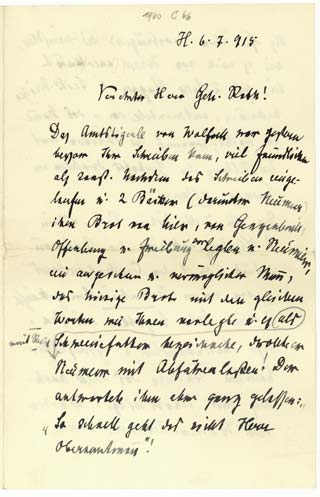 1960 C 66
H. 6. 7. 915
Verehrter Herr Geh. Rath!
Das von Wolfach war gestern
bevor Ihr Schreiben kam, viel freundlicher
als sonst. Nachdem das Schreiben einge-
laufen u. 2 Bäcker (darunter Neumeier
ihm Brot von hier, von Gengenbach
Offenburg u. Freiburg vorlegten u. Neumeier,
ein angesehen u. vermöglicher Mann,
das hiesige Brot mit den gleichen
Worten wie Ihnen vorlegte u. es als
Schweinefutter bezeichnete, wollte er
Neumeier mit Abführen lassen! Der
antwortete ihm aber ganz gelassen:
"So schnell geht das nicht Herr
Oberamtmann"!